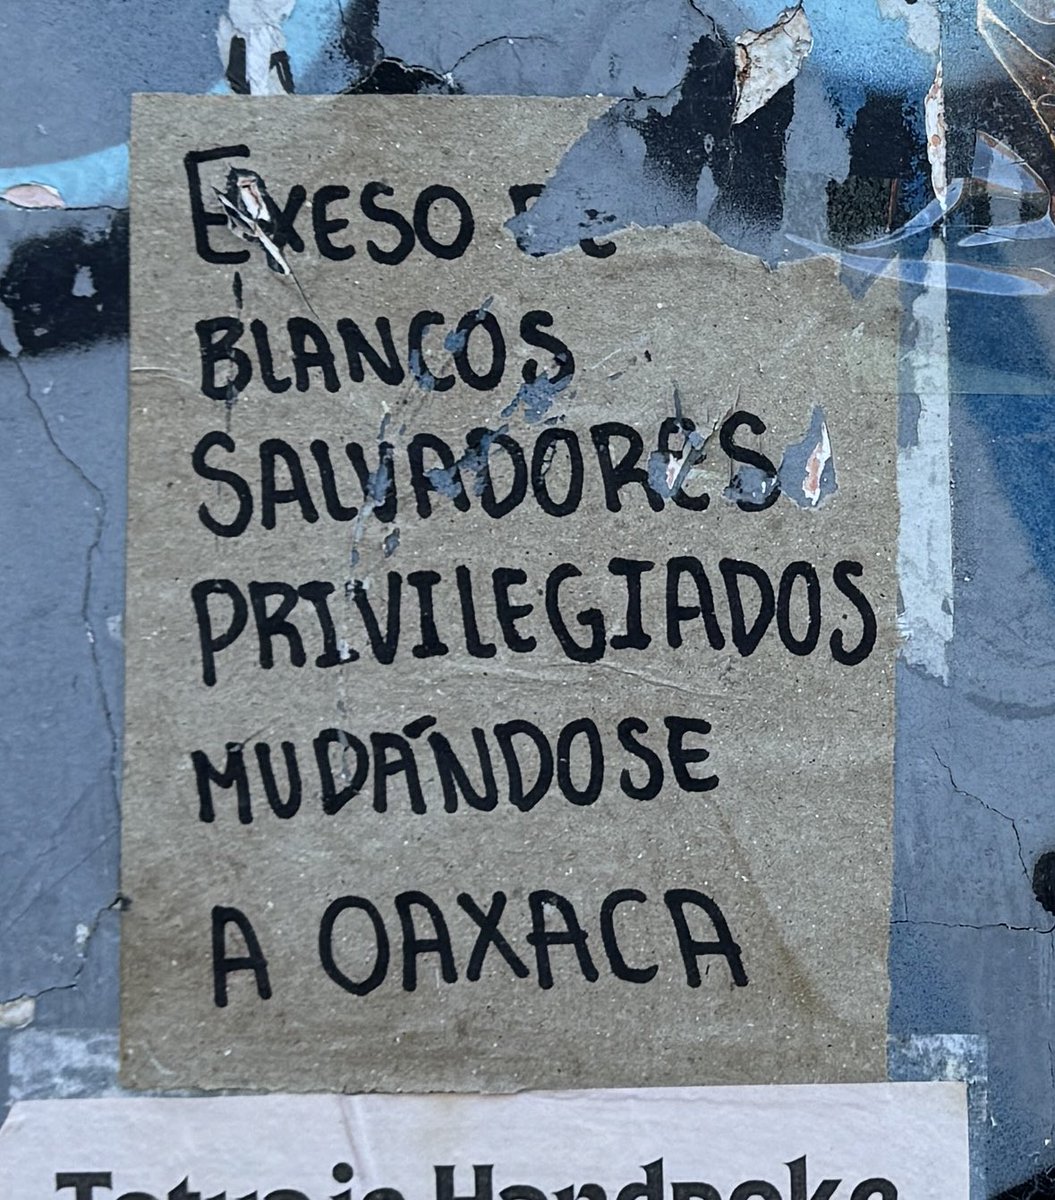 EXESO DE
BLANCOS
SALVADORES
PRIVILEGIADOS
MUDÁNDOSE
A OAXACA
Tatuaje Handpoke